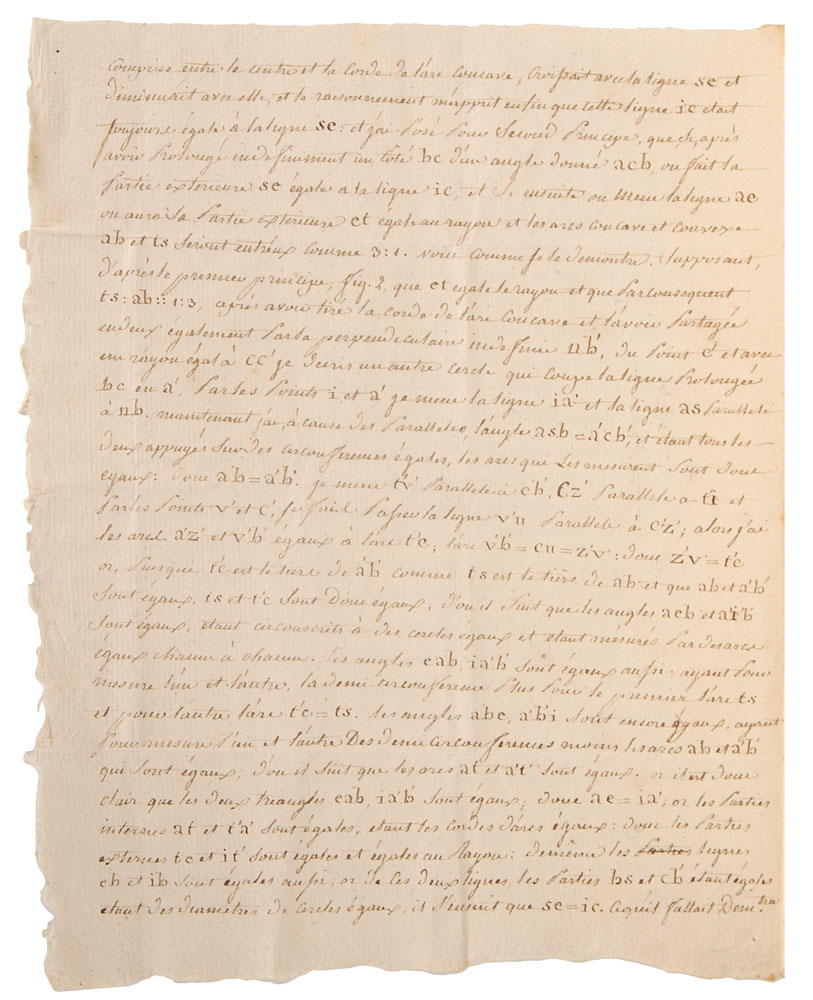 comprise entre le centre et la corde de l'arc concave, croissait avec la ligne se et
diminuait avec elle, et le raisonnement m'apprit enfin que cette ligne ic etait
toujours égale à la ligne se: et j'ai Posé Pour Second Principe, que si, après
avoir Prolongé indefiniment un coté bc d'un angle donné acb, on fait la
Partie exterieure se égale a la ligne ic, et si ensuite on mene la ligne ae
on aura la Partie exterieure et égale au rayon et les arcs concave et convexe
ab et ts seront entr'eux comme 3:1. voici comme je le demontre. Supposant,
d'après le premier principe, fig. 2, que et egale le rayon et que Par consequent
ts:ab::1:3, après avoir tiré la corde de l'arc concave et l'avoir Partagée
en deux également Par la perpendiculaire indefinie nb', du Point c' et avec
un rayon égal à cc' je decris un autre cercle qui coupe la ligne Prolongée
bc en a', Par les Points i et a' je mene la ligne ia' et la ligne as Parallele
à nb. maintenant j'ai, à cause des Paralleles, l'angle asb=a'cb', et étant tous les
deux appuyés sur des circonferences égales, les arcs qui Les mesurent sont donc
egaux: donc ab=a'b'. je mene t'v' Parallele à cb', c'z' Parallele a t'i et
Par les Points v' et c', je fais Passer la ligne v'n Parallele à c'z'; alors j'ai
les arcs a'z' et v'b' égaux à l'arc t'c; l'arc v'b'=cn=z'v': donc z'v'=t'c
or, Puisque t'c est le tiers de a'b' comme ts est le tiers de ab et que ab et a'b'
sont égaux, ts et t'c sont Donc égaux; d'ou il suit que les angles aeb et a'ib'
sont égaux, etant circonscrits à des cercles égaux et etant mesurés Par des arcs
égaux chacun à chacun. les angles eab, ia'b' sont égaux aussi, ayant Pour
mesure l'un et l'autre, la demi circonference Plus Pour le premier l'arc ts
et pour l'autre l'arc t'c=ts. les angles abe, a'b'i sont encore égaux, ayant
Pour mesure l'un et l'autre Des demi circonferences moins les arcs ab et a'b'
qui sont égaux; d'ou il suit que les arcs at et a't' sont égaux. or il est donc
clair que les deux triangles eab, ia'b' sont égaux; donc ae=ia'; or les Parties
internes at et t'a' sont égales, etant les cordes d'arcs égaux: donc les Parties
externes te et it' sont égales et égales au Rayon: de même les Parties lignes
eb et ib' sont égales aussi; or de ces deux lignes, les Parties bs et cb' étant égales
etant des diametres de cercles égaux, il s'ensuit que se=ic. ce qu'il fallait Dem.tre